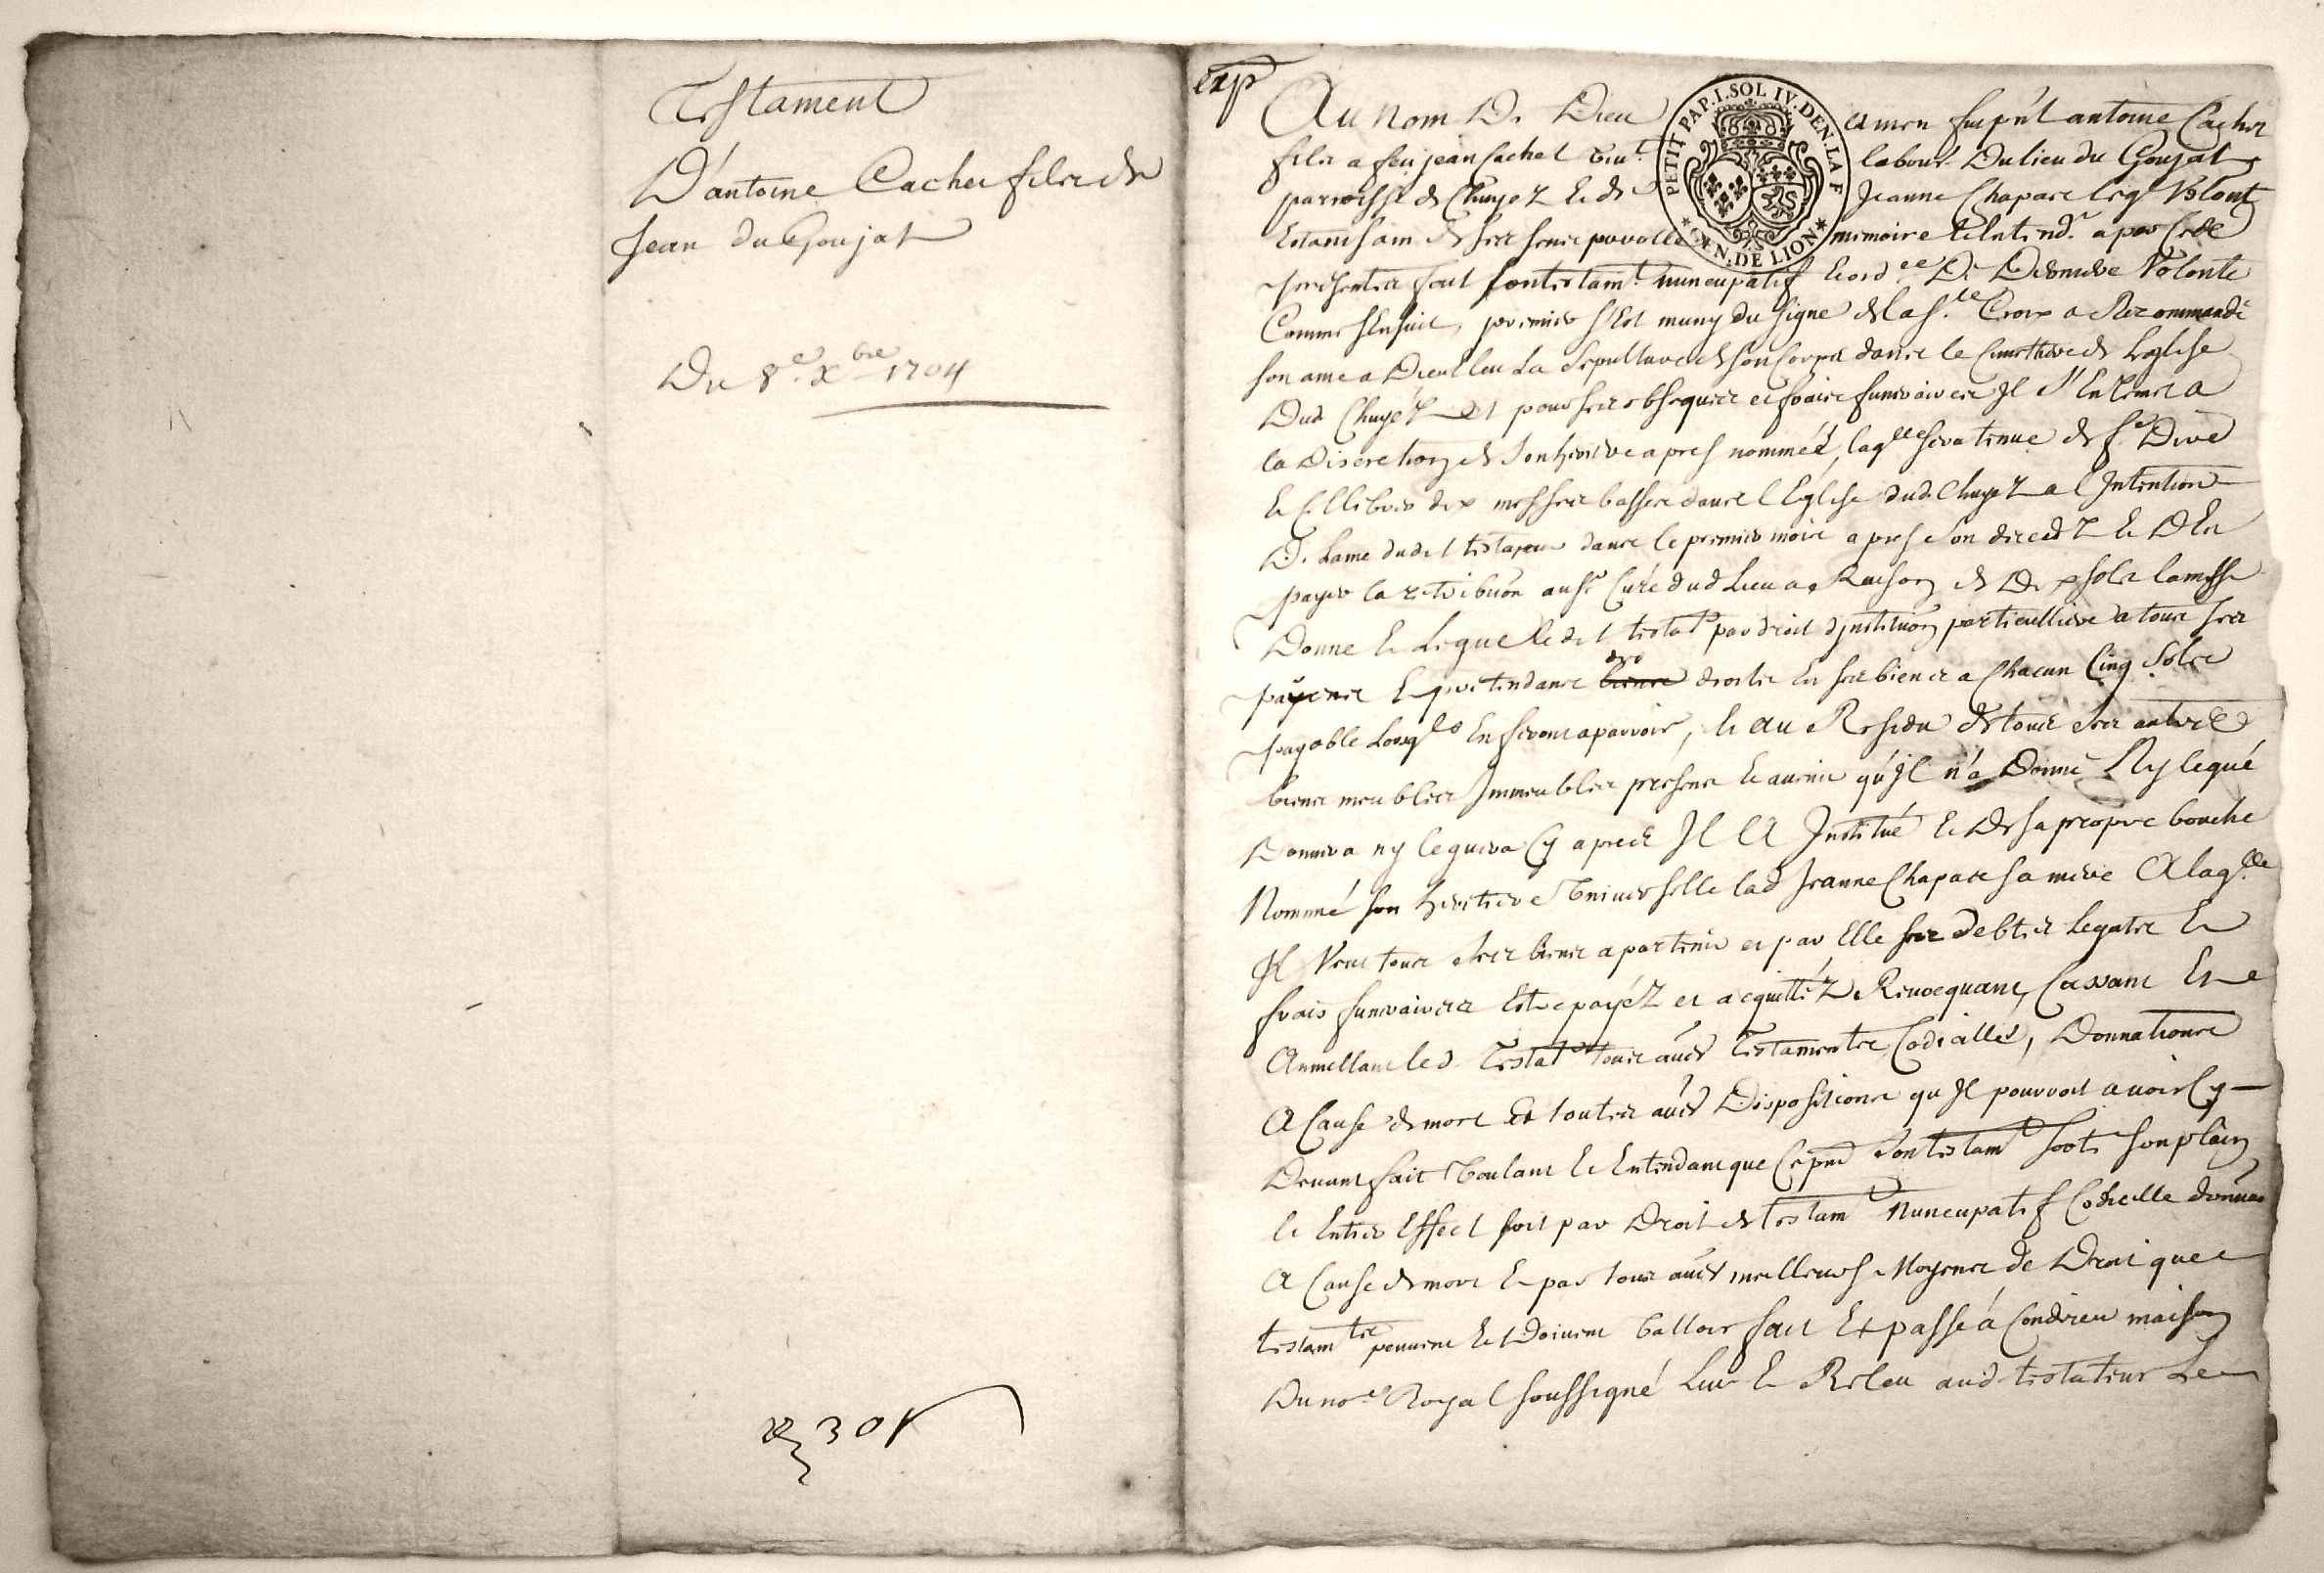 Testament
D'antoine Cachet fils de
Jean du Goujat
Du 8e. Xbre 1704
30s
exp
PETIT PAP. I. SOL IV. DEN. LA F
GEN. DE LION
Au Nom De Dieu amen fut pnt antoine Cachet
fils a feu jean Cachet viut. labour. Du lieu du Goujat
parroisse de Chuyez & de Jeanne Chapare leql Volont
Estant sain de ses sens parolle memoire & Entend.t a par Cette
presentes fait son testam.t nuncupatif & ord.ce De Derniere Volonte
Comme s'Ensuit, premier s'Est muny du signe de la s.te Croix a Recommandé
son ame a Dieu Eleu La Sepulture de son Corps dans le Cimethiere de Leglise
Dud Chuyez Et pour ses obseques et fraix funeraires Il s'En remet a
la Discretion de son heritiere apres nommée, laqlle sera tenue de fe Dire
& Cellebrer dix messes basses dans l'Eglise dud. Chuyez a l'Intention
De Lame dudit testateur dans le premier mois apres son decedz & D'En
payer la retribuon au sr Curé dud Lieu a Raison de Dix sols la messe
Donne & Legue ledit testatr par droit d'Institution particulliere a tous ses
parens & pretendants dro droits En ses biens a Chacun Cinq Sols
payable Lorsqls En feront aparoir, & au Residu de tous ses autres
biens meubles Immeubles presens & avenir qu'Il n'a Donné Ny legué
Donnera ny leguera Cy apres Il A Institué & De sa propre bouche
Nommé son heritiere Universelle lad Jeanne Chapare sa mere A laqlle
Il Veut tous ses biens apartenir et par Elle ses debtes legats &
frais funeraires Estre payéz et acquittéz Revocquant, Cassant Et
Annullant led. Testatr tous aures Testaments Codicilles, Donnations
A Cause de mort Et toutes aures Dispositions qu Il pourroit avoir Cy
Devant fait Voulant & Entendant que Ce pnt son testamt Sorte son plain
& Entier Effect soit par Droit de testamt Nuncupatif Codicille donnaon
A Cause de mort & par tous aures meilleurs Moyens de Droit que
testamts peuvent Et Doivent Valloir fait Et passé a Condrieu maison
Du nore Royal soussigné Lut & Releu aud. testateur Le